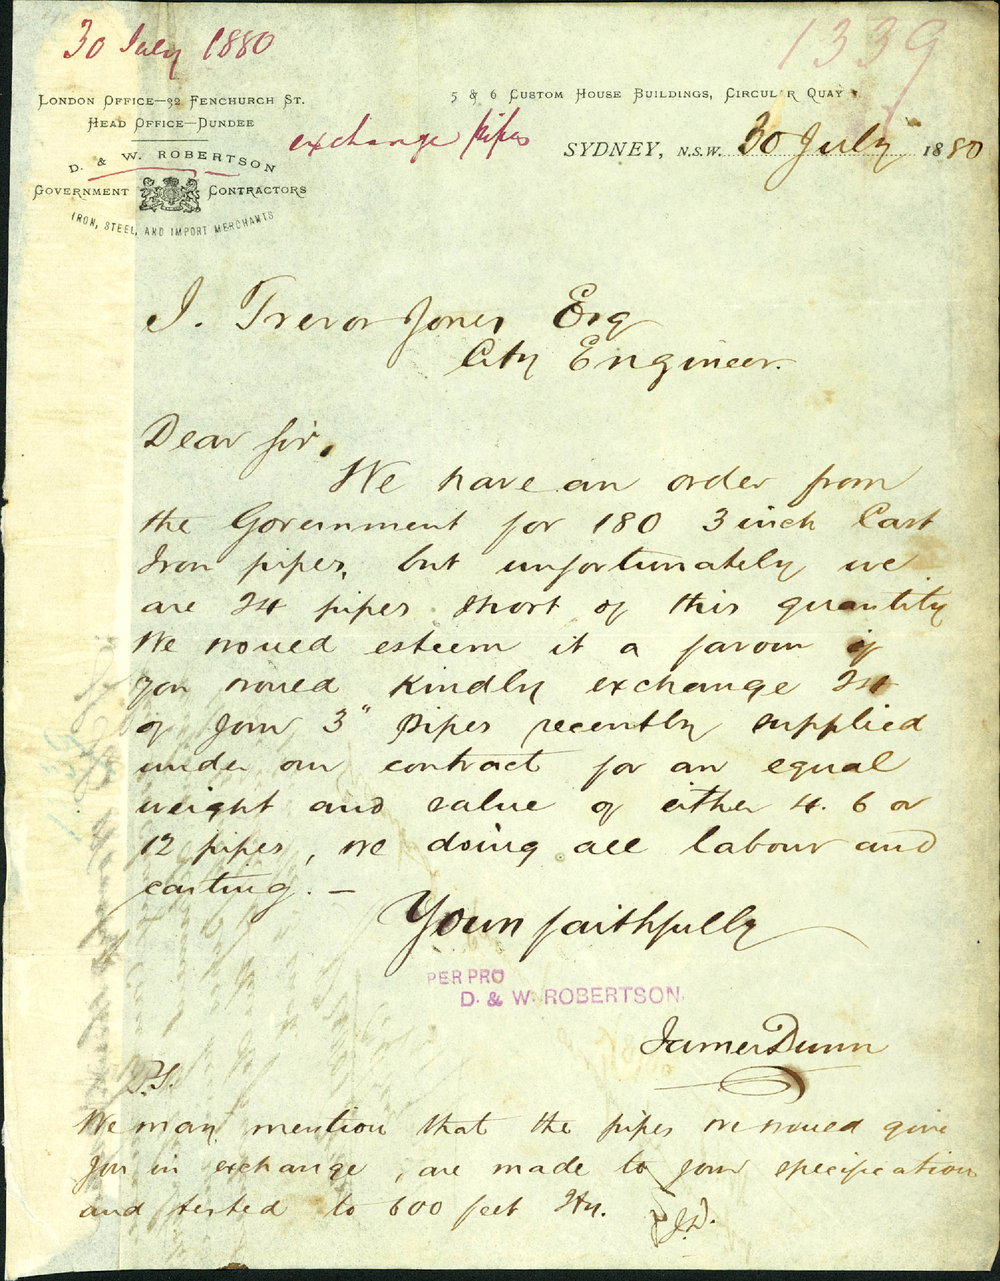 30 July 1880
1339
LONDON OFFICE—32 FENCHURCH ST.
HEAD OFFICE—DUNDEE
D. & W. ROBERTSON
GOVERNMENT CONTRACTORS
IRON, STEEL, AND IMPORT MERCHANTS
exchange pipes
5 & 6 CUSTOM HOUSE BUILDINGS, CIRCULAR QUAY
SYDNEY, N.S.W. 30 July 1880
J. Trevor Jones Esq
City Engineer.
Dear Sir,
We have an order from
the Government for 180 3 inch Cast
Iron pipes, but unfortunately we
are 24 pipes short of this quantity
We would esteem it a favour if
you would kindly exchange 24
of your 3" pipes recently supplied
under our contract for an equal
weight and value of either 4. 6 or
12 pipes, we doing all labour and
carting. —
Yours faithfully
PER PRO
D. & W. ROBERTSON.
James Dunn
P.S.
We may mention that the pipes we would give
you in exchange, are made to your specification
and tested to 600 feet
J.D.